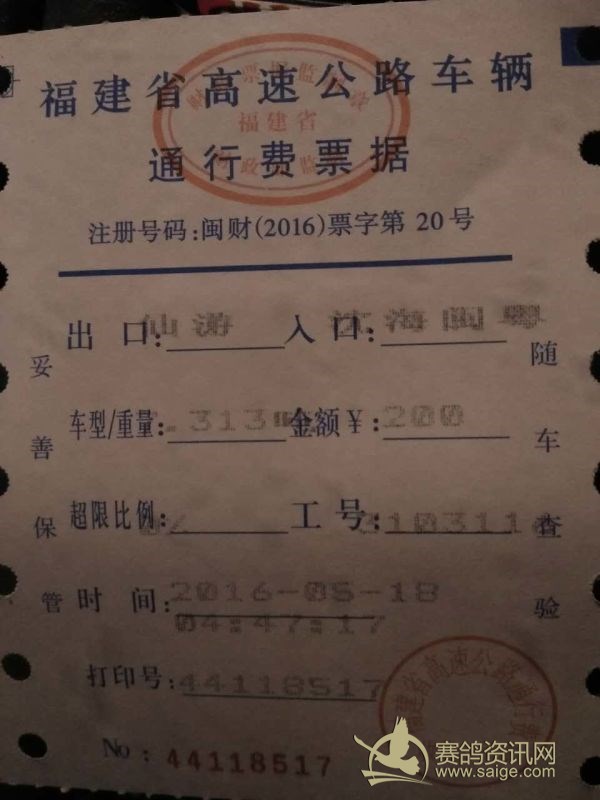 福建省高速公路车辆
通行费票据
福建省
注册号码:闽财(2016)票字第 20号
出 口: 仙游 入口: 沈海闽粤
车型/重量: .313 金额¥: 200
超限比例: 工 号:
时 间: 2016-05-18
04:47:17
打印号: 44118517
No: 44118517
妥善保管
随车查验
福建省高速公路通行费
赛鸽资讯网
www.saige.com